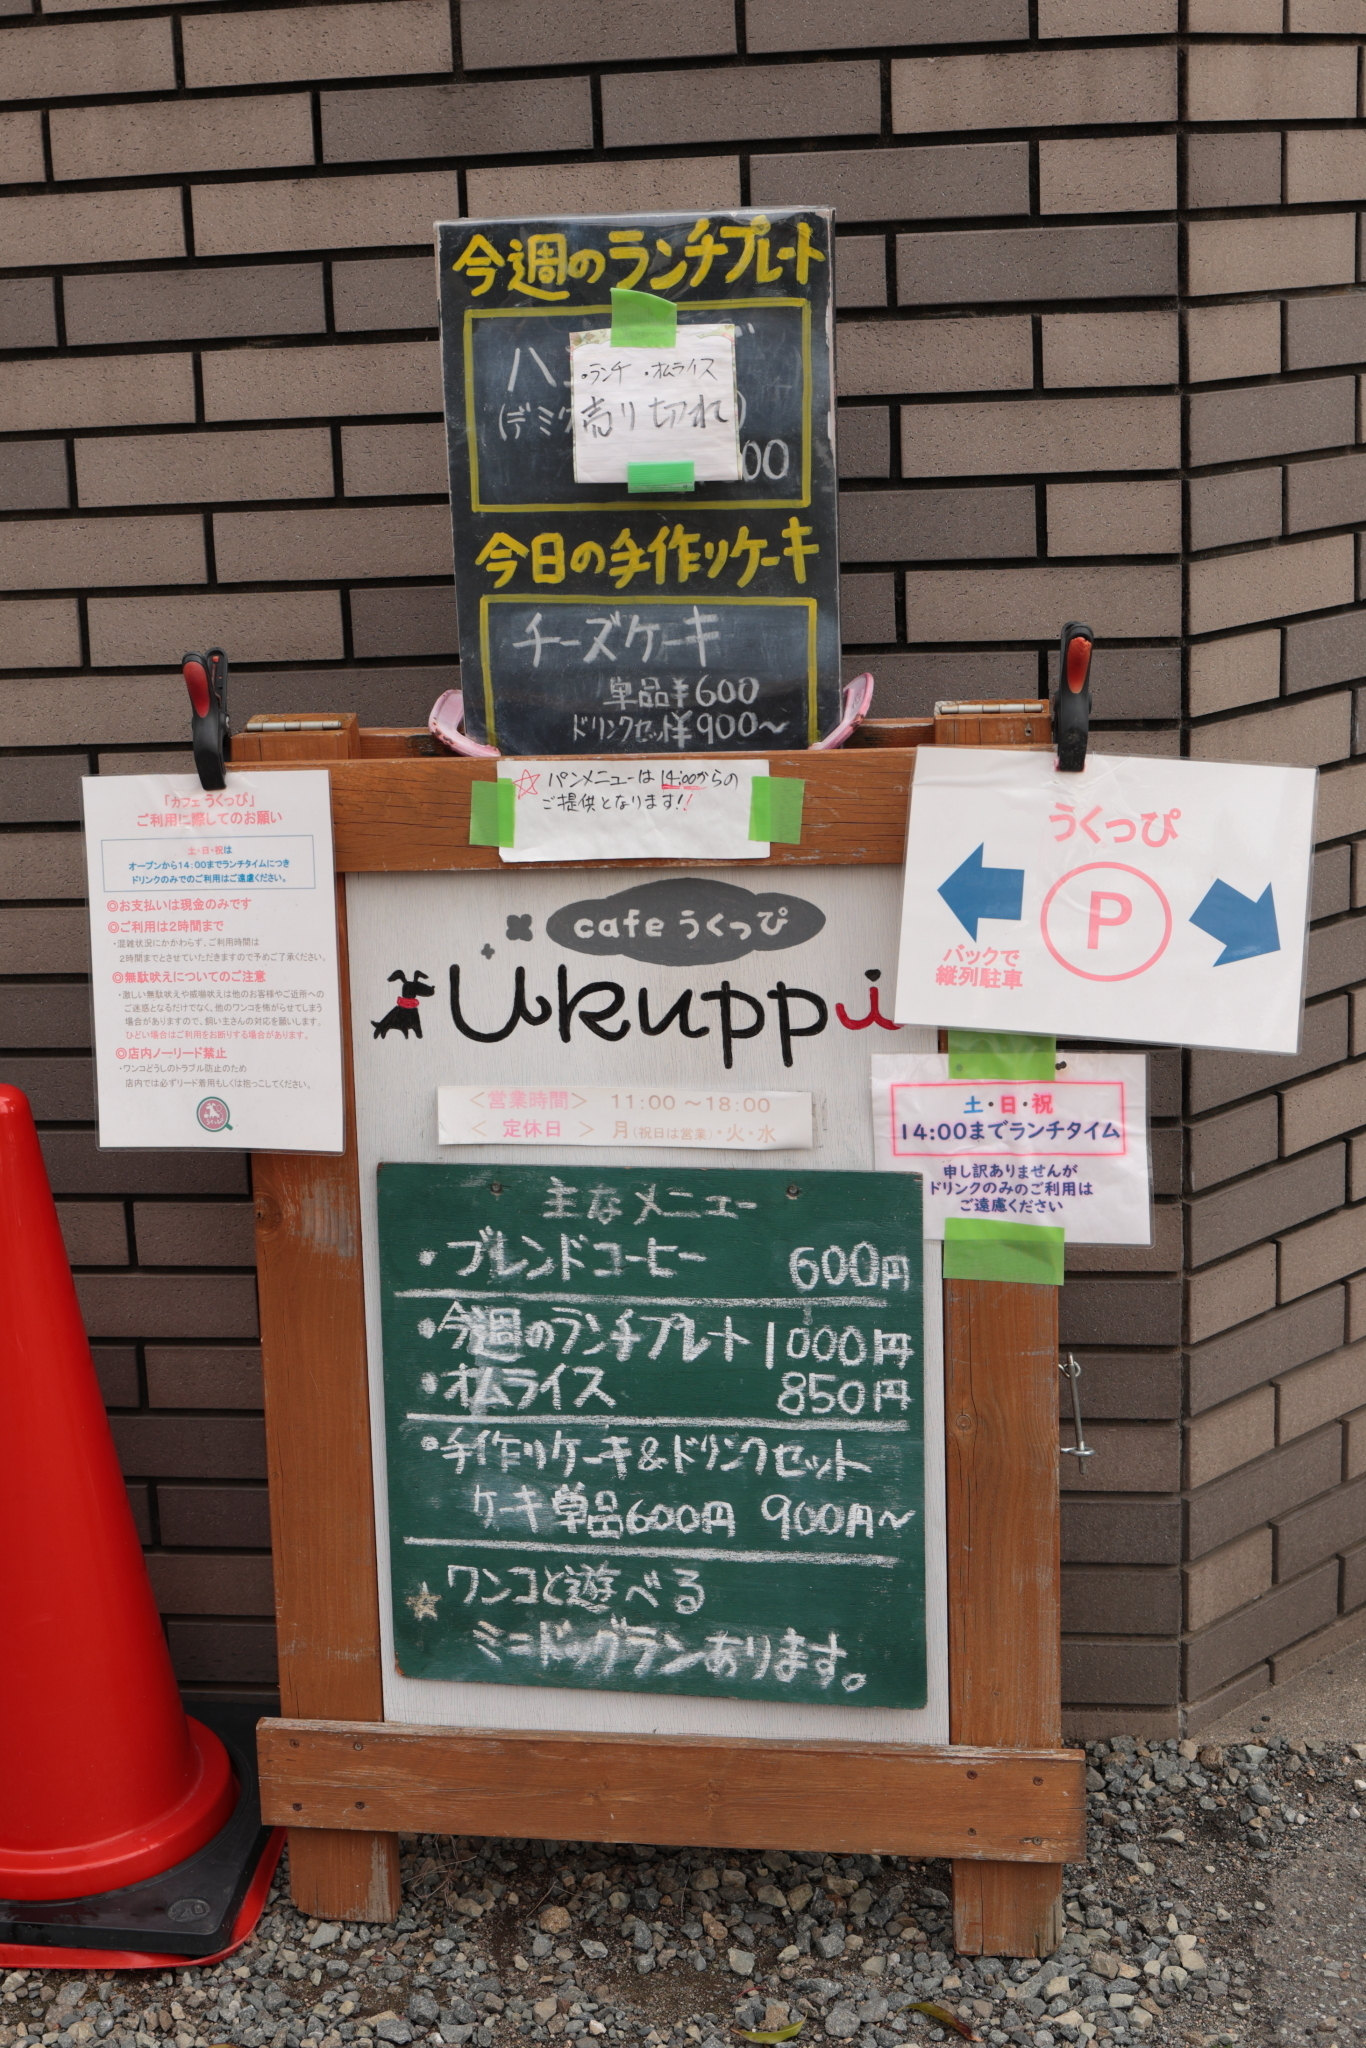 今週のランチプレート
・ランチ ・オムライス
売り切れ
ハ
(デミグ
00
今日の手作りケーキ
チーズケーキ
単品¥600
ドリンクセット¥900〜
☆パンメニューは14:00からの
ご提供となります!!
「カフェうくっぴ」
ご利用に際してのお願い
土・日・祝は
オープンから14:00までランチタイムにつき
ドリンクのみでのご利用はご遠慮ください。
◎お支払いは現金のみです
◎ご利用は2時間まで
・混雑状況にかかわらず、ご利用時間は
2時間までとさせていただきますので予めご了承ください。
◎無駄吠えについてのご注意
・激しい無駄吠えや威嚇吠えは他のお客様やご近所への
ご迷惑となるだけでなく、他のワンコを怖がらせてしまう
場合がありますので、飼い主さんの対応を願いします。
ひどい場合はご利用をお断りする場合があります。
◎店内ノーリード禁止
・ワンコどうしのトラブル防止のため
店内では必ずリード着用もしくは抱っこしてください。
うくっぴ
P
バックで
縦列駐車
cafe うくっぴ
Ukuppi
<営業時間> 11:00 〜18:00
< 定休日 > 月(祝日は営業)・火・水
土・日・祝
14:00までランチタイム
申し訳ありませんが
ドリンクのみのご利用は
ご遠慮ください
主なメニュー
・ブレンドコーヒー 600円
・今週のランチプレート 1000円
・オムライス 850円
・手作りケーキ&ドリンクセット
ケーキ単品600円 900円〜
☆ワンコと遊べる
ミニドッグランあります。